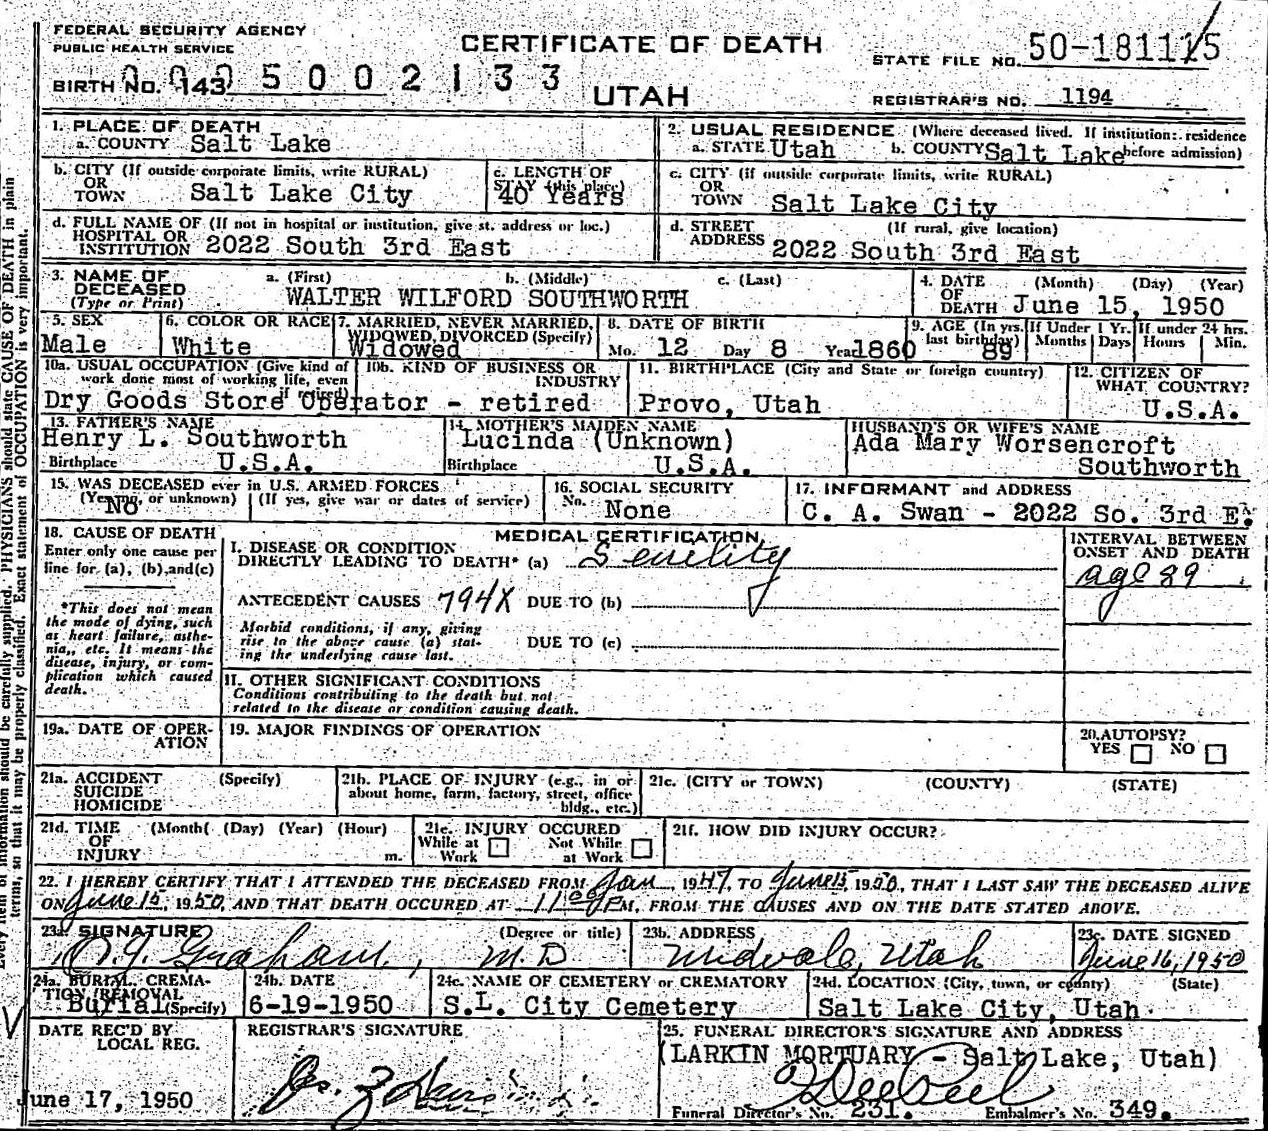 FEDERAL SECURITY AGENCY
PUBLIC HEALTH SERVICE
CERTIFICATE OF DEATH
STATE FILE NO. 50-181115
BIRTH NO. 143 0005002133
UTAH
REGISTRAR'S NO. 1194
1. PLACE OF DEATH
a. COUNTY Salt Lake
2. USUAL RESIDENCE (Where deceased lived. If institution: residence before admission)
a. STATE Utah b. COUNTY Salt Lake
b. CITY (If outside corporate limits, write RURAL)
OR
TOWN Salt Lake City
c. LENGTH OF
STAY (this place)
40 Years
c. CITY (if outside corporate limits, write RURAL)
OR
TOWN Salt Lake City
d. FULL NAME OF (If not in hospital or institution, give st. address or loc.)
HOSPITAL OR
INSTITUTION 2022 South 3rd East
d. STREET (If rural, give location)
ADDRESS 2022 South 3rd East
3. NAME OF a. (First) b. (Middle) c. (Last)
DECEASED
(Type or Print) WALTER WILFORD SOUTHWORTH
4. DATE (Month) (Day) (Year)
OF
DEATH June 15, 1950
5. SEX
Male
6. COLOR OR RACE
White
7. MARRIED, NEVER MARRIED,
WIDOWED, DIVORCED (Specify)
Widowed
8. DATE OF BIRTH
Mo. 12 Day 8 Year 1860
9. AGE (In yrs.
last birthday) 89
If Under 1 Yr.
Months Days
If under 24 hrs.
Hours Min.
10a. USUAL OCCUPATION (Give kind of
work done most of working life, even
if retired)
10b. KIND OF BUSINESS OR
INDUSTRY
Dry Goods Store Operator - retired
11. BIRTHPLACE (City and State or foreign country)
Provo, Utah
12. CITIZEN OF
WHAT COUNTRY?
U.S.A.
13. FATHER'S NAME
Henry L. Southworth
Birthplace U.S.A.
14. MOTHER'S MAIDEN NAME
Lucinda (Unknown)
Birthplace U.S.A.
HUSBAND'S OR WIFE'S NAME
Ada Mary Worsencroft
Southworth
15. WAS DECEASED ever in U.S. ARMED FORCES
(Yes, no, or unknown) (If yes, give war or dates of service)
No
16. SOCIAL SECURITY
No. None
17. INFORMANT and ADDRESS
C. A. Swan - 2022 So. 3rd E.
18. CAUSE OF DEATH
Enter only one cause per
line for (a), (b), and (c)
*This does not mean
the mode of dying, such
as heart failure, asthe-
nia, etc. It means the
disease, injury, or com-
plication which caused
death.
MEDICAL CERTIFICATION
I. DISEASE OR CONDITION
DIRECTLY LEADING TO DEATH* (a) Senility
ANTECEDENT CAUSES 794X DUE TO (b)
Morbid conditions, if any, giving
rise to the above cause (a) stat-
ing the underlying cause last.
DUE TO (c)
II. OTHER SIGNIFICANT CONDITIONS
Conditions contributing to the death but not
related to the disease or condition causing death.
INTERVAL BETWEEN
ONSET AND DEATH
age 89
19a. DATE OF OPER-
ATION
19. MAJOR FINDINGS OF OPERATION
20. AUTOPSY?
YES NO
21a. ACCIDENT (Specify)
SUICIDE
HOMICIDE
21b. PLACE OF INJURY (e.g., in or
about home, farm, factory, street, office
bldg., etc.)
21c. (CITY OR TOWN) (COUNTY) (STATE)
21d. TIME (Month) (Day) (Year) (Hour)
OF
INJURY m.
21e. INJURY OCCURED
While at Not While
Work at Work
21f. HOW DID INJURY OCCUR?
22. I HEREBY CERTIFY THAT I ATTENDED THE DECEASED FROM Jan, 1947, TO June 15, 1950, THAT I LAST SAW THE DECEASED ALIVE
ON June 15, 1950, AND THAT DEATH OCCURED AT 11 00 P M, FROM THE CAUSES AND ON THE DATE STATED ABOVE.
23a. SIGNATURE (Degree or title)
Graham, M.D
23b. ADDRESS
Midvale, Utah
23c. DATE SIGNED
June 16, 1950
24a. BURIAL, CREMA-
TION, REMOVAL
Burial (Specify)
24b. DATE
6-19-1950
24c. NAME OF CEMETERY or CREMATORY
S.L. City Cemetery
24d. LOCATION (City, town, or county) (State)
Salt Lake City, Utah
DATE REC'D BY
LOCAL REG.
June 17, 1950
REGISTRAR'S SIGNATURE
25. FUNERAL DIRECTOR'S SIGNATURE AND ADDRESS
(LARKIN MORTUARY - Salt Lake, Utah)
Funeral Director's No. 231. Embalmer's No. 349.
Every item of information should be carefully supplied. PHYSICIANS should state CAUSE OF DEATH in plain
terms, so that it may be properly classified. Exact statement of OCCUPATION is very important.